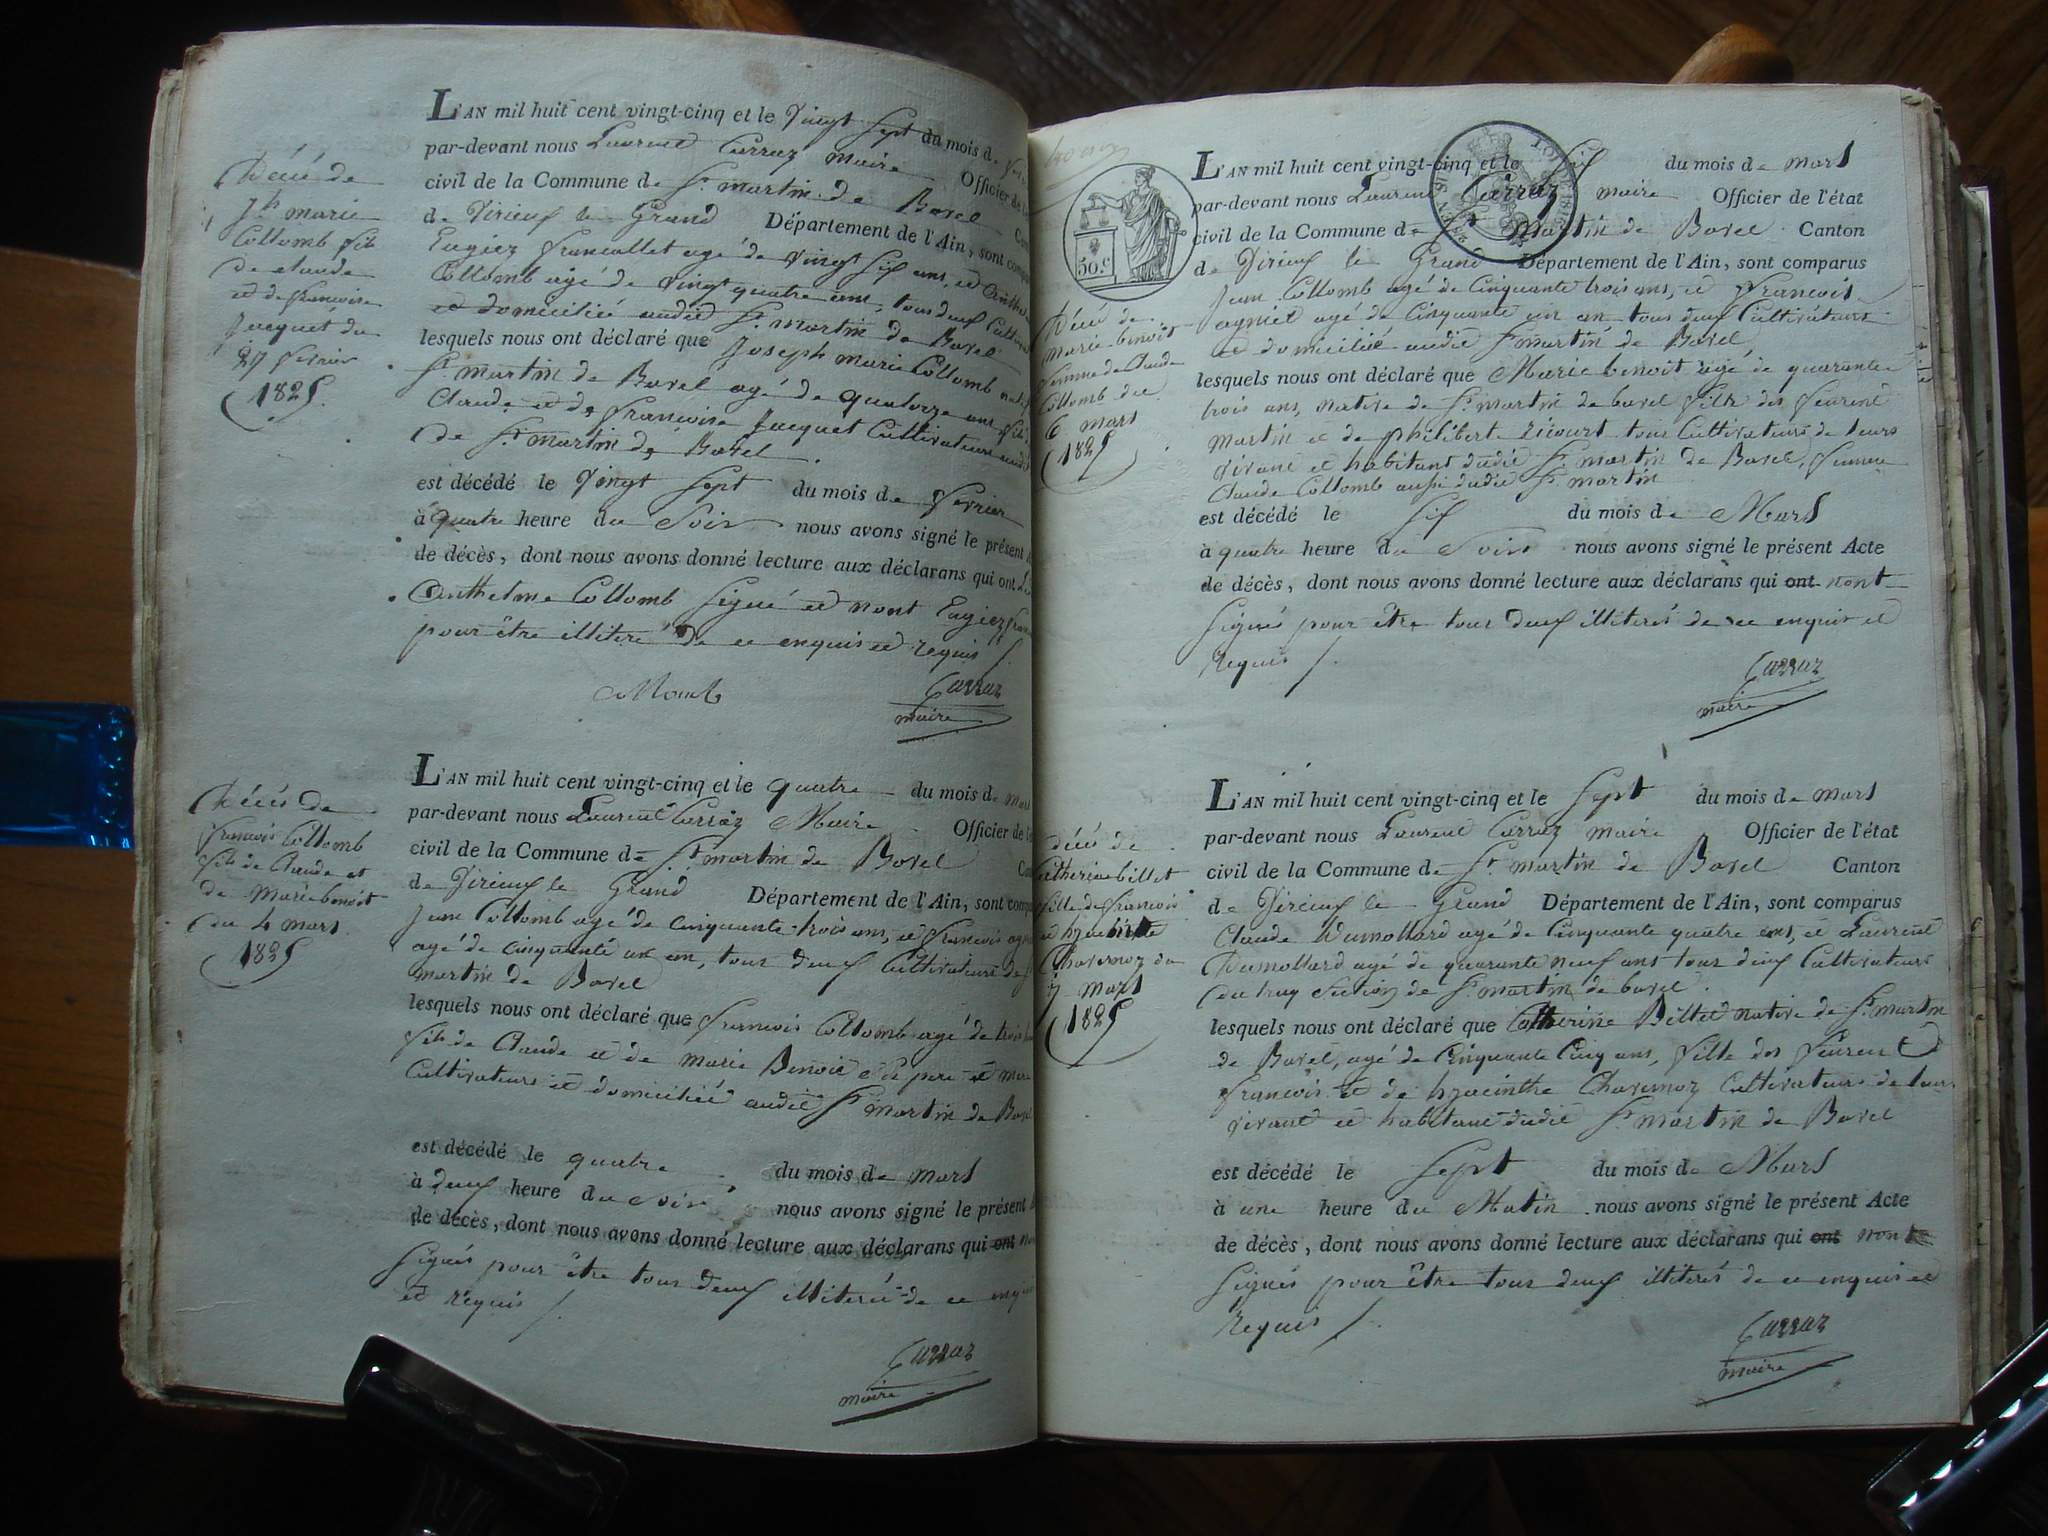 Décé de
Jh marie
Collomb fils
de claude
et de francoise
Jacquet du
27 fevrier
1825.
L'AN mil huit cent vingt-cinq et le Vingt Sept du mois de
par-devant nous Laurent Carraz maire Officier de
civil de la Commune de St. martin de Bavel
de Virieux le Grand Département de l'Ain, sont
Eugiez francallet agé de vingt six ans, et
Collomb agé de vingt quatre ans, tous deux
et domicilié audit St. martin de Bavel
lesquels nous ont déclaré que Joseph marie Collomb
St. martin de Bavel agé de quatorze ans, fils
Claude et de francoise Jacquet Cultivateurs
de St. martin de Bavel.
est décédé le Vingt Sept du mois de fevrier
à quatre heure du Soir nous avons signé le présent
de décès, dont nous avons donné lecture aux déclarans qui ont
Anthelme Collomb Signé et nont Eugiez
pour être illiteré de ce enquis et requis
Collomb
Carraz
maire
Décès de
francois Collomb
fils de Claude et
de Marie benoit
du 4 mars
1825
L'AN mil huit cent vingt-cinq et le quatre du mois de mars
par-devant nous Laurent Carraz Maire Officier de
civil de la Commune de St martin de Bavel
de Virieux le Grand Département de l'Ain, sont
Jean Collomb agé de cinquante trois ans, et francois
agé de cinquante un an, tous deux Cultivateurs de
martin de Bavel
lesquels nous ont déclaré que francois Collomb agé de trois
fils de Claude et de marie Benoit pere et mere
Cultivateurs et domicilié audit St martin de
est décédé le quatre du mois de mars
à deux heure du Soir nous avons signé le présent
de décès, dont nous avons donné lecture aux déclarans qui ont
Signés pour être tous deux illiterés de ce
et requis
Carraz
maire
50.c
Décé de
marie benoit
femme de Claude
Collomb du
6 mars
1825
L'AN mil huit cent vingt-cinq et le Six du mois de mars
par-devant nous Laurent Carraz maire Officier de l'état
civil de la Commune de St martin de Bavel Canton
de Virieux le Grand Département de l'Ain, sont comparus
Jean Collomb agé de Cinquante trois ans, et francois
agniel agé de Cinquante un an tous deux Cultivateurs
et domicilié audit St martin de Bavel
lesquels nous ont déclaré que Marie benoit agé de quarante
trois ans, native de St. martin de bavel fille des feurent
martin et de philiberte ricourt tous Cultivateurs de leurs
vivant et habitant dudit St. martin de Bavel, femme
Claude Collomb aussi dudit St. martin
est décédé le Six du mois de Mars
à quatre heure du Soir nous avons signé le présent Acte
de décès, dont nous avons donné lecture aux déclarans qui ont nont
Signés pour être tous deux illiterés de ce enquis et
requis
Carraz
maire
décé de
Catherine billet
fille de francois
et hyacinthe
Chavernoz du
7 mars
1825
L'AN mil huit cent vingt-cinq et le Sept du mois de mars
par-devant nous Laurent Carraz maire Officier de l'état
civil de la Commune de St. martin de Bavel Canton
de Virieux le Grand Département de l'Ain, sont comparus
Claude Dumollard agé de Cinquante quatre ans, et Laurent
Dumollard agé de quarante neuf ans tous deux Cultivateurs
section de St. martin de bavel.
lesquels nous ont déclaré que Catherine Billet native de St. martin
de Bavel, agé de Cinquante Cinq ans, fille des feurent
francois et de hyacinthe Chavernoz Cultivateurs de leur
vivant et habitant dudit St. martin de Bavel
est décédé le Sept du mois de Mars
à une heure du Matin nous avons signé le présent Acte
de décès, dont nous avons donné lecture aux déclarans qui ont nont
Signés pour être tous deux illiterés de ce enquis et
requis
Carraz
maire